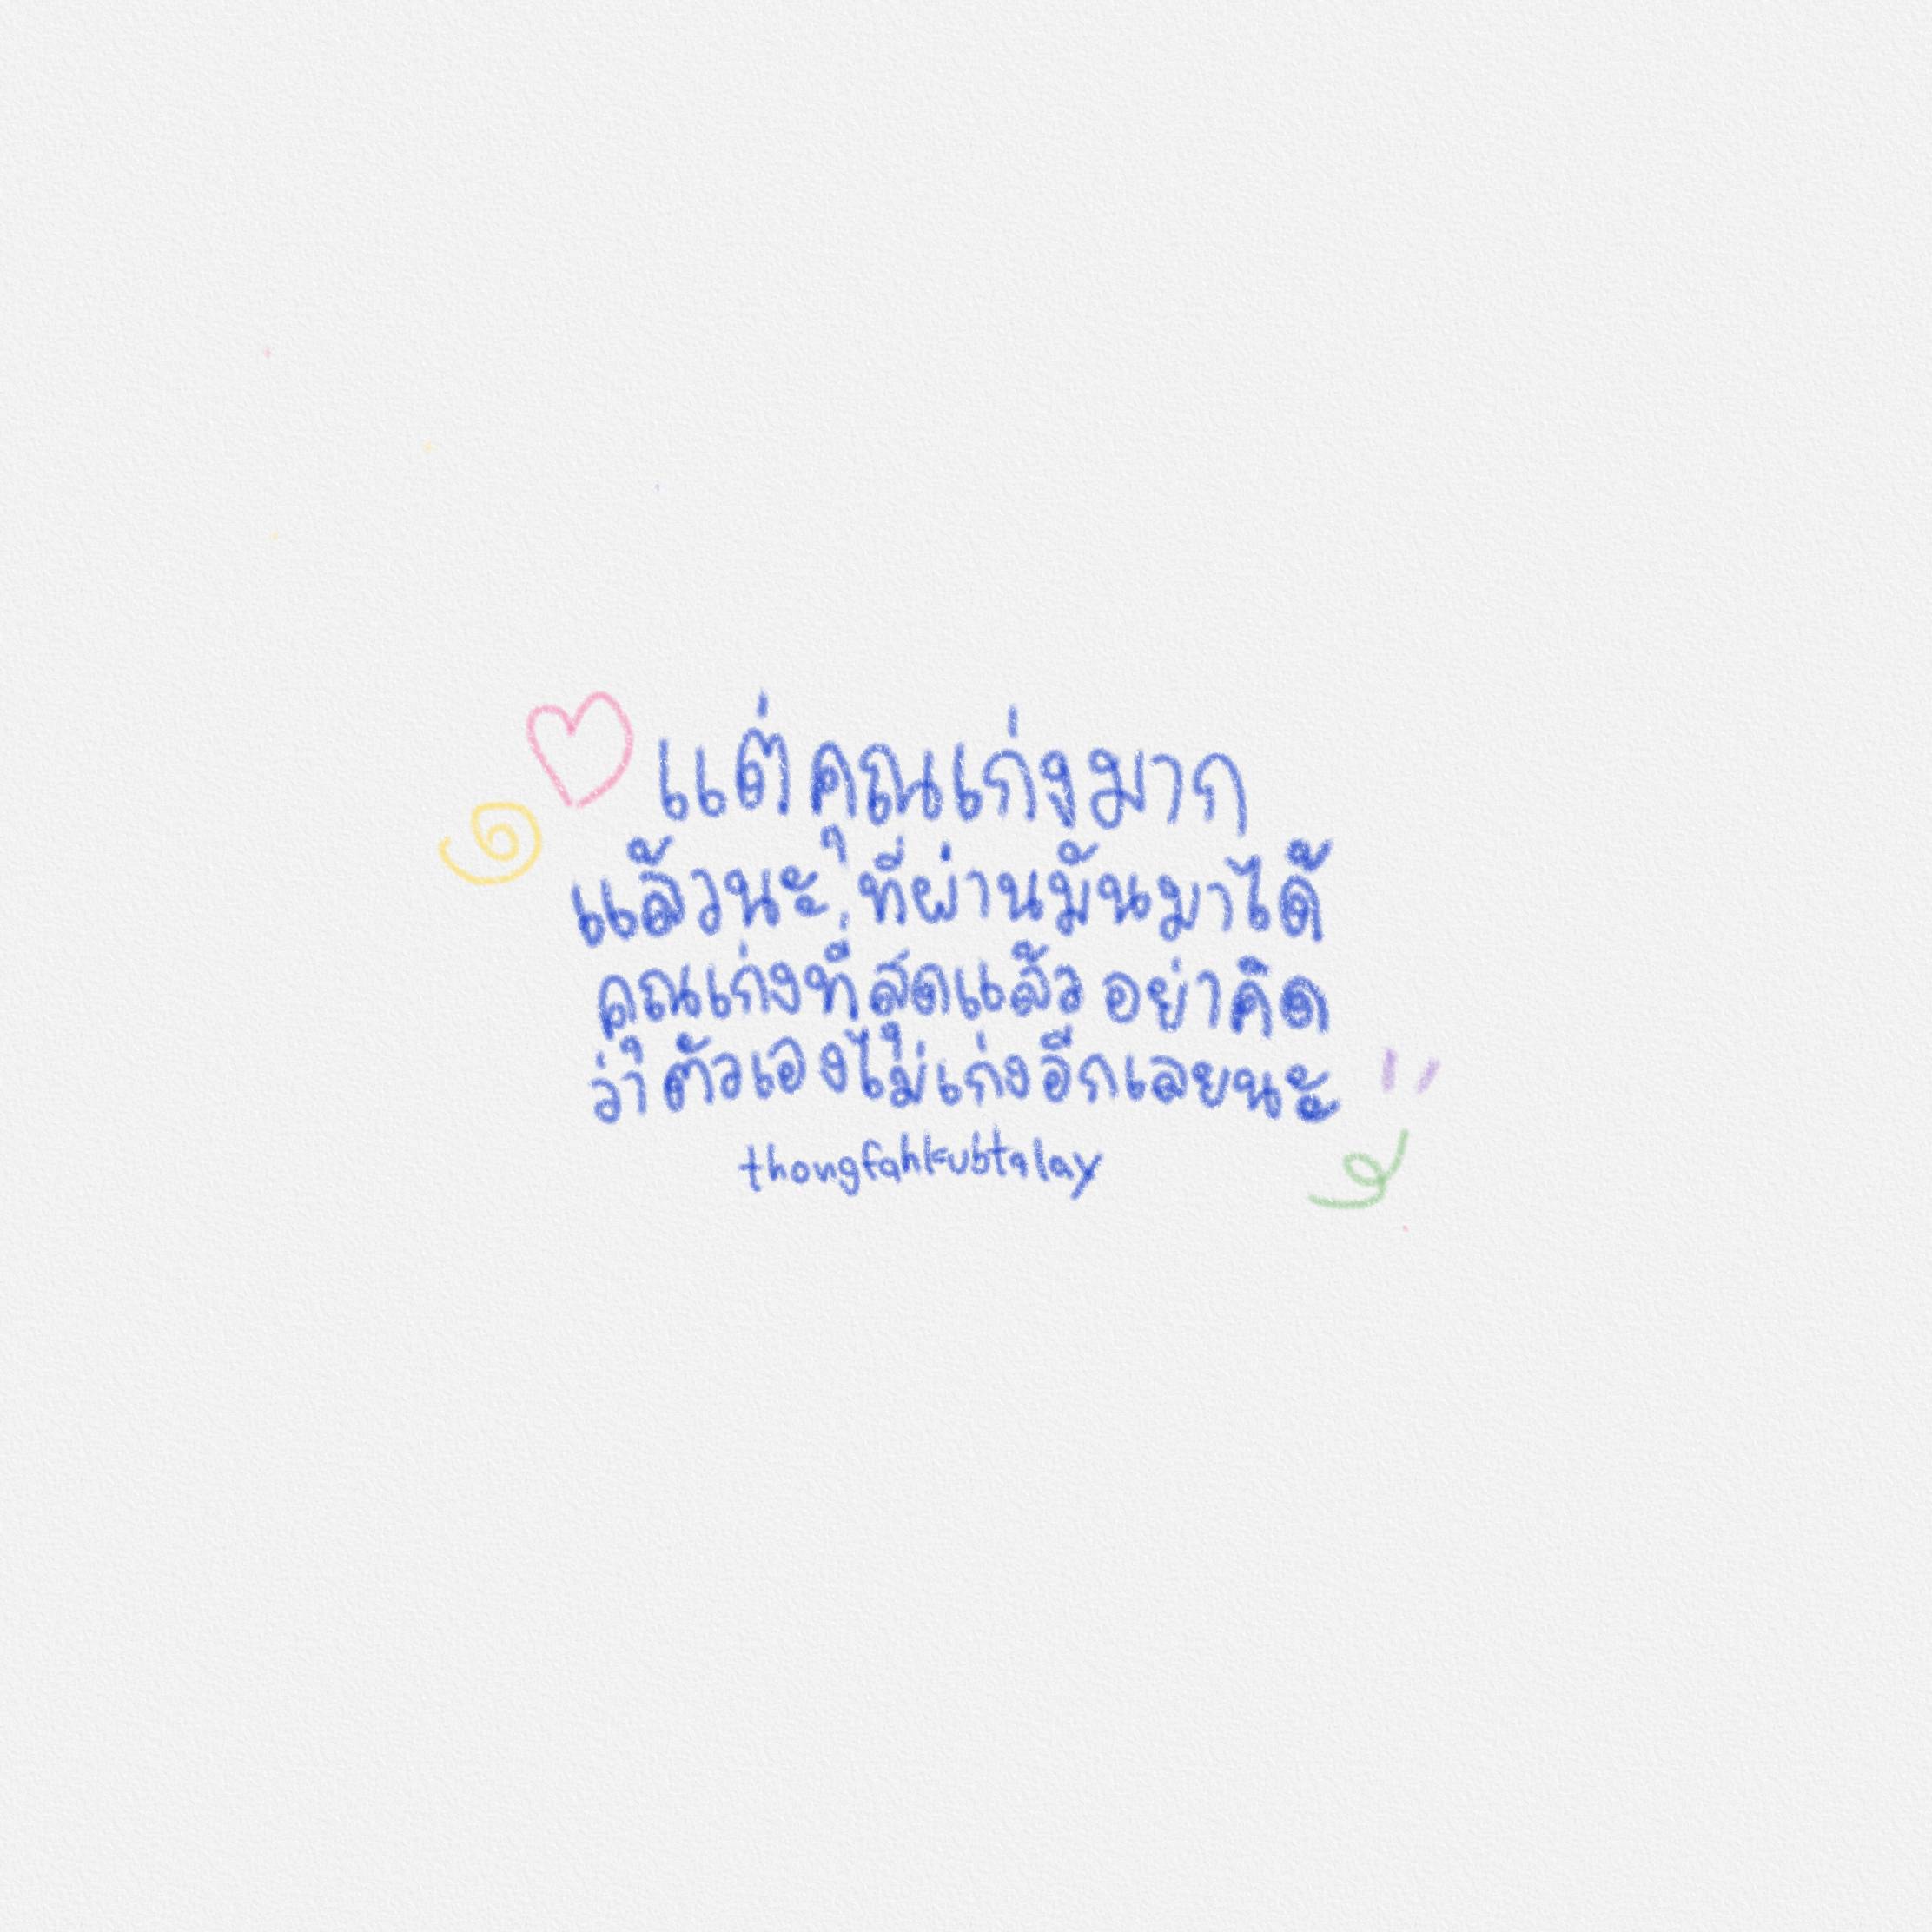 แต่คุณเก่งมาก
แล้วนะ ที่ผ่านมันมาได้
คุณเก่งที่สุดแล้ว อย่าคิด
ว่าตัวเองไม่เก่งอีกเลยนะ
thongfahkubtalay